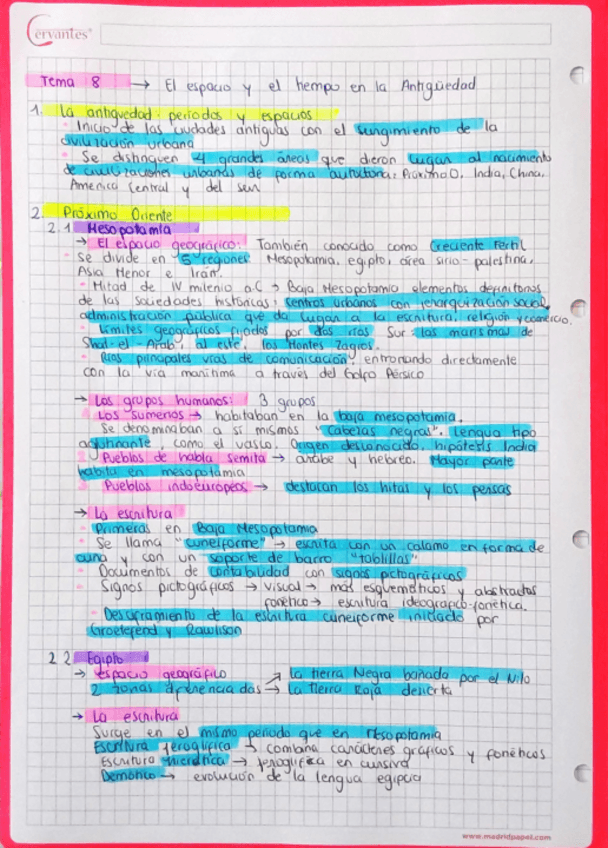 Cervantes
Tema 8 → El espacio y el tiempo en la Antigüedad
1. La antiguedad: periodos y espacios
- Inicio de las ciudades antiguas con el surgimiento de la
civilización urbana
- Se distinguen 4 grandes áreas que dieron lugar al nacimiento
de civilizaciones urbanas de forma autóctona: Próximo O, India, China,
America Central y del sur
2. Próximo Oriente
2.1 Mesopotamia
→ El espacio geográfico: También conocido como Creciente Fértil
Se divide en 5 regiones: Mesopotamia, egipto, área sirio-palestina,
Asia Menor e Irán.
- Mitad de IV milenio a.C → Baja Mesopotamia elementos definitorios
de las sociedades históricas: centros urbanos con jerarquización social,
administración pública que da lugar a la escritura, religión y comercio.
- Límites geográficos fijados por dos ríos. Sur: las marismas de
Shat-el-Arab, al este, los Montes Zagros.
- Ríos principales vías de comunicación, entroncando directamente
con la vía marítima a través del Golfo Pérsico
→ Los grupos humanos: 3 grupos
Los sumerios → habitaban en la baja mesopotamia.
Se denominaban a sí mismos "cabezas negras". Lengua tipo
aglutinante, como el vasco. Origen desconocido, hipótesis India
Pueblos de habla semita → arabe y hebreo. Mayor parte
habita en mesopotamia
Pueblos indoeuropeos → destacan los hititas y los persas
→ La escritura
- Primeras en Baja Mesopotamia
- Se llama "cuneiforme" → escrita con un calamo en forma de
cuña y con un soporte de barro "tablillas"
- Documentos de contabilidad con signos pictográficos
- Signos pictográficos → visual → más esquemáticos y abstractos
fonético → escritura ideografico-fonética.
- Desciframiento de la escritura cuneiforme iniciado por
Groetefend y Rawlison
2.2 Egipto
→ espacio geográfico
2 zonas diferenciadas → la tierra Negra bañada por el Nilo
→ la Tierra Roja desierta
→ La escritura
Surge en el mismo periodo que en Mesopotamia
Escritura jeroglífica → combina carácteres gráficos y fonéticos
Escritura hierática → jeroglífica en cursiva
Demótico → evolución de la lengua egipcia
www.madridpapel.com